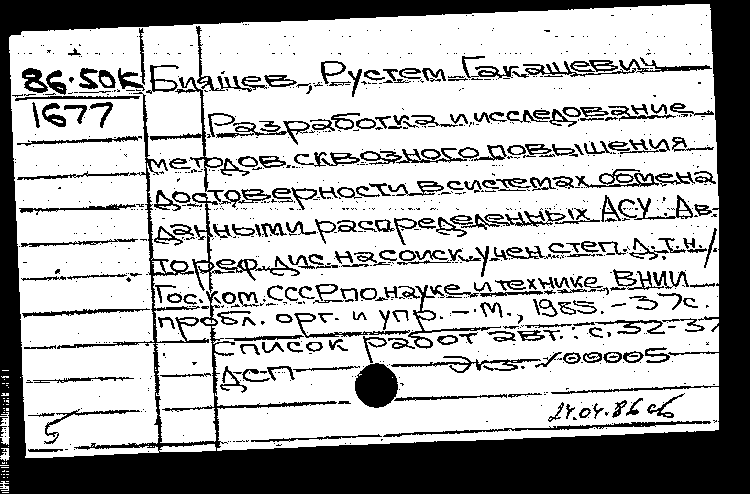 86-50К Бияшев, Рустем Гакашевич
1677 Разработка и исследование
методов сквозного повышения
достоверности в системах обмена
данными распределенных АСУ: Ав-
тореф. дис. на соиск. учен. степ. д.т.н. /
Гос. ком. СССР по науке и технике, ВНИИ
пробл. орг. и упр. – М., 1985. – 37с.
Список работ авт.: с. 32-37
ДСП Экз. √00005
5 24.04.86